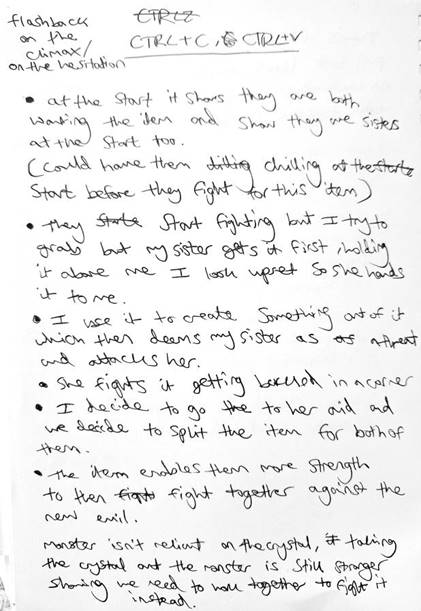 flashback
on the
climax/
on the hesitation
CTRLZ
CTRL+C, CTRL+V
• at the start it shows they are both
wanting the item and show they are sisters
at the start too.
(could have them chilling at the start
start before they fight for this item)
• They start fighting but I try to
grab but my sister gets it first, holding
it above me I look upset so she hands
it to me.
• I use it to create something out of it
which then deems my sister as a threat
and attacks her.
• She fights it getting backed in a corner
• I decide to go to her aid and
we decide to split the item for both of
them.
• the item enables them more strength
to then fight together against the
new evil.
monster isn't reliant on the crystal, taking
the crystal out the monster is still stronger
showing we need to work together to fight it
instead.